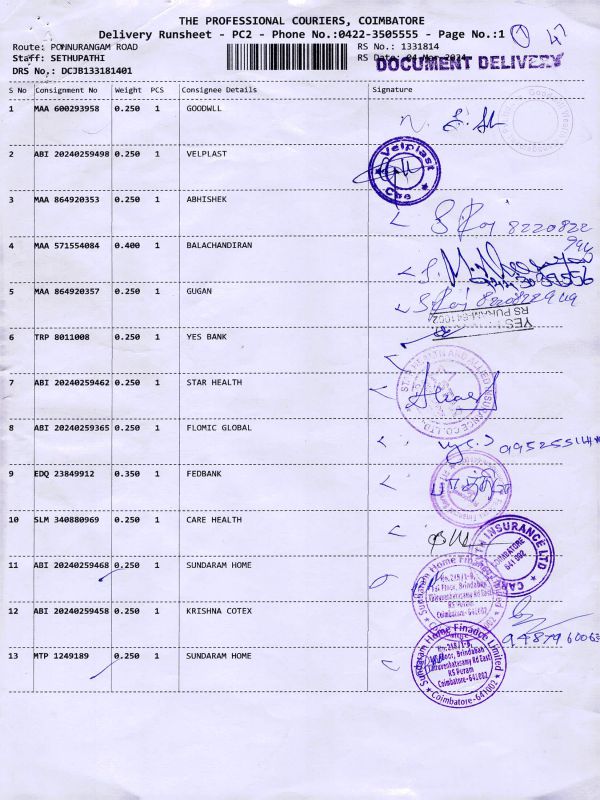 THE PROFESSIONAL COURIERS, COIMBATORE
Delivery Runsheet - PC2 - Phone No.:0422-3505555 - Page No.:1
Route: PONNURANGAM ROAD RS No.: 1331814
Staff: SETHUPATHI RS Date: 04 Mar 2024
DOCUMENT DELIVERY
DRS No.: DCJB133181401
S No Consignment No Weight PCS Consignee Details Signature
1 MAA 600293958 0.250 1 GOODWLL
2 ABI 20240259498 0.250 1 VELPLAST
Velplast
Cbe
3 MAA 864920353 0.250 1 ABHISHEK
8220822
4 MAA 571554084 0.400 1 BALACHANDIRAN
5 MAA 864920357 0.250 1 GUGAN
6 TRP 8011008 0.250 1 YES BANK
7 ABI 20240259462 0.250 1 STAR HEALTH
STAR HEALTH AND ALLIED INSURANCE CO. LTD.
8 ABI 20240259365 0.250 1 FLOMIC GLOBAL
9 EDQ 23849912 0.350 1 FEDBANK
10 SLM 340880969 0.250 1 CARE HEALTH
INSURANCE LTD
COIMBATORE
641 002
11 ABI 20240259468 0.250 1 SUNDARAM HOME
Sundaram Home Finance Limited
RS Puram
12 ABI 20240259458 0.250 1 KRISHNA COTEX
13 MTP 1249189 0.250 1 SUNDARAM HOME
Sundaram Home Finance Limited
RS Puram
Coimbatore-641002